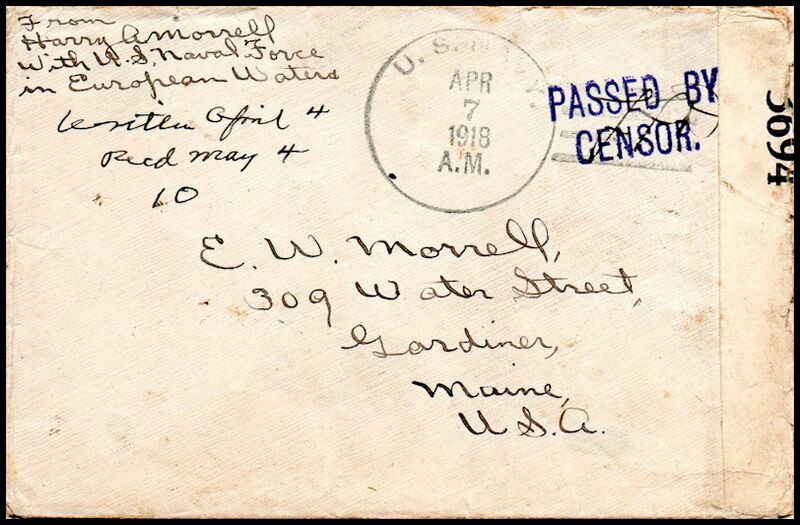 From
Harry A Morrell
With U.S. Naval Force
in European Waters
written April 4
Recd May 4
10
U. S. NAVY.
APR
7
1918
A.M.
PASSED BY
CENSOR.
3694
E. W. Morrell,
309 Water Street,
Gardiner,
Maine,
U.S.A.